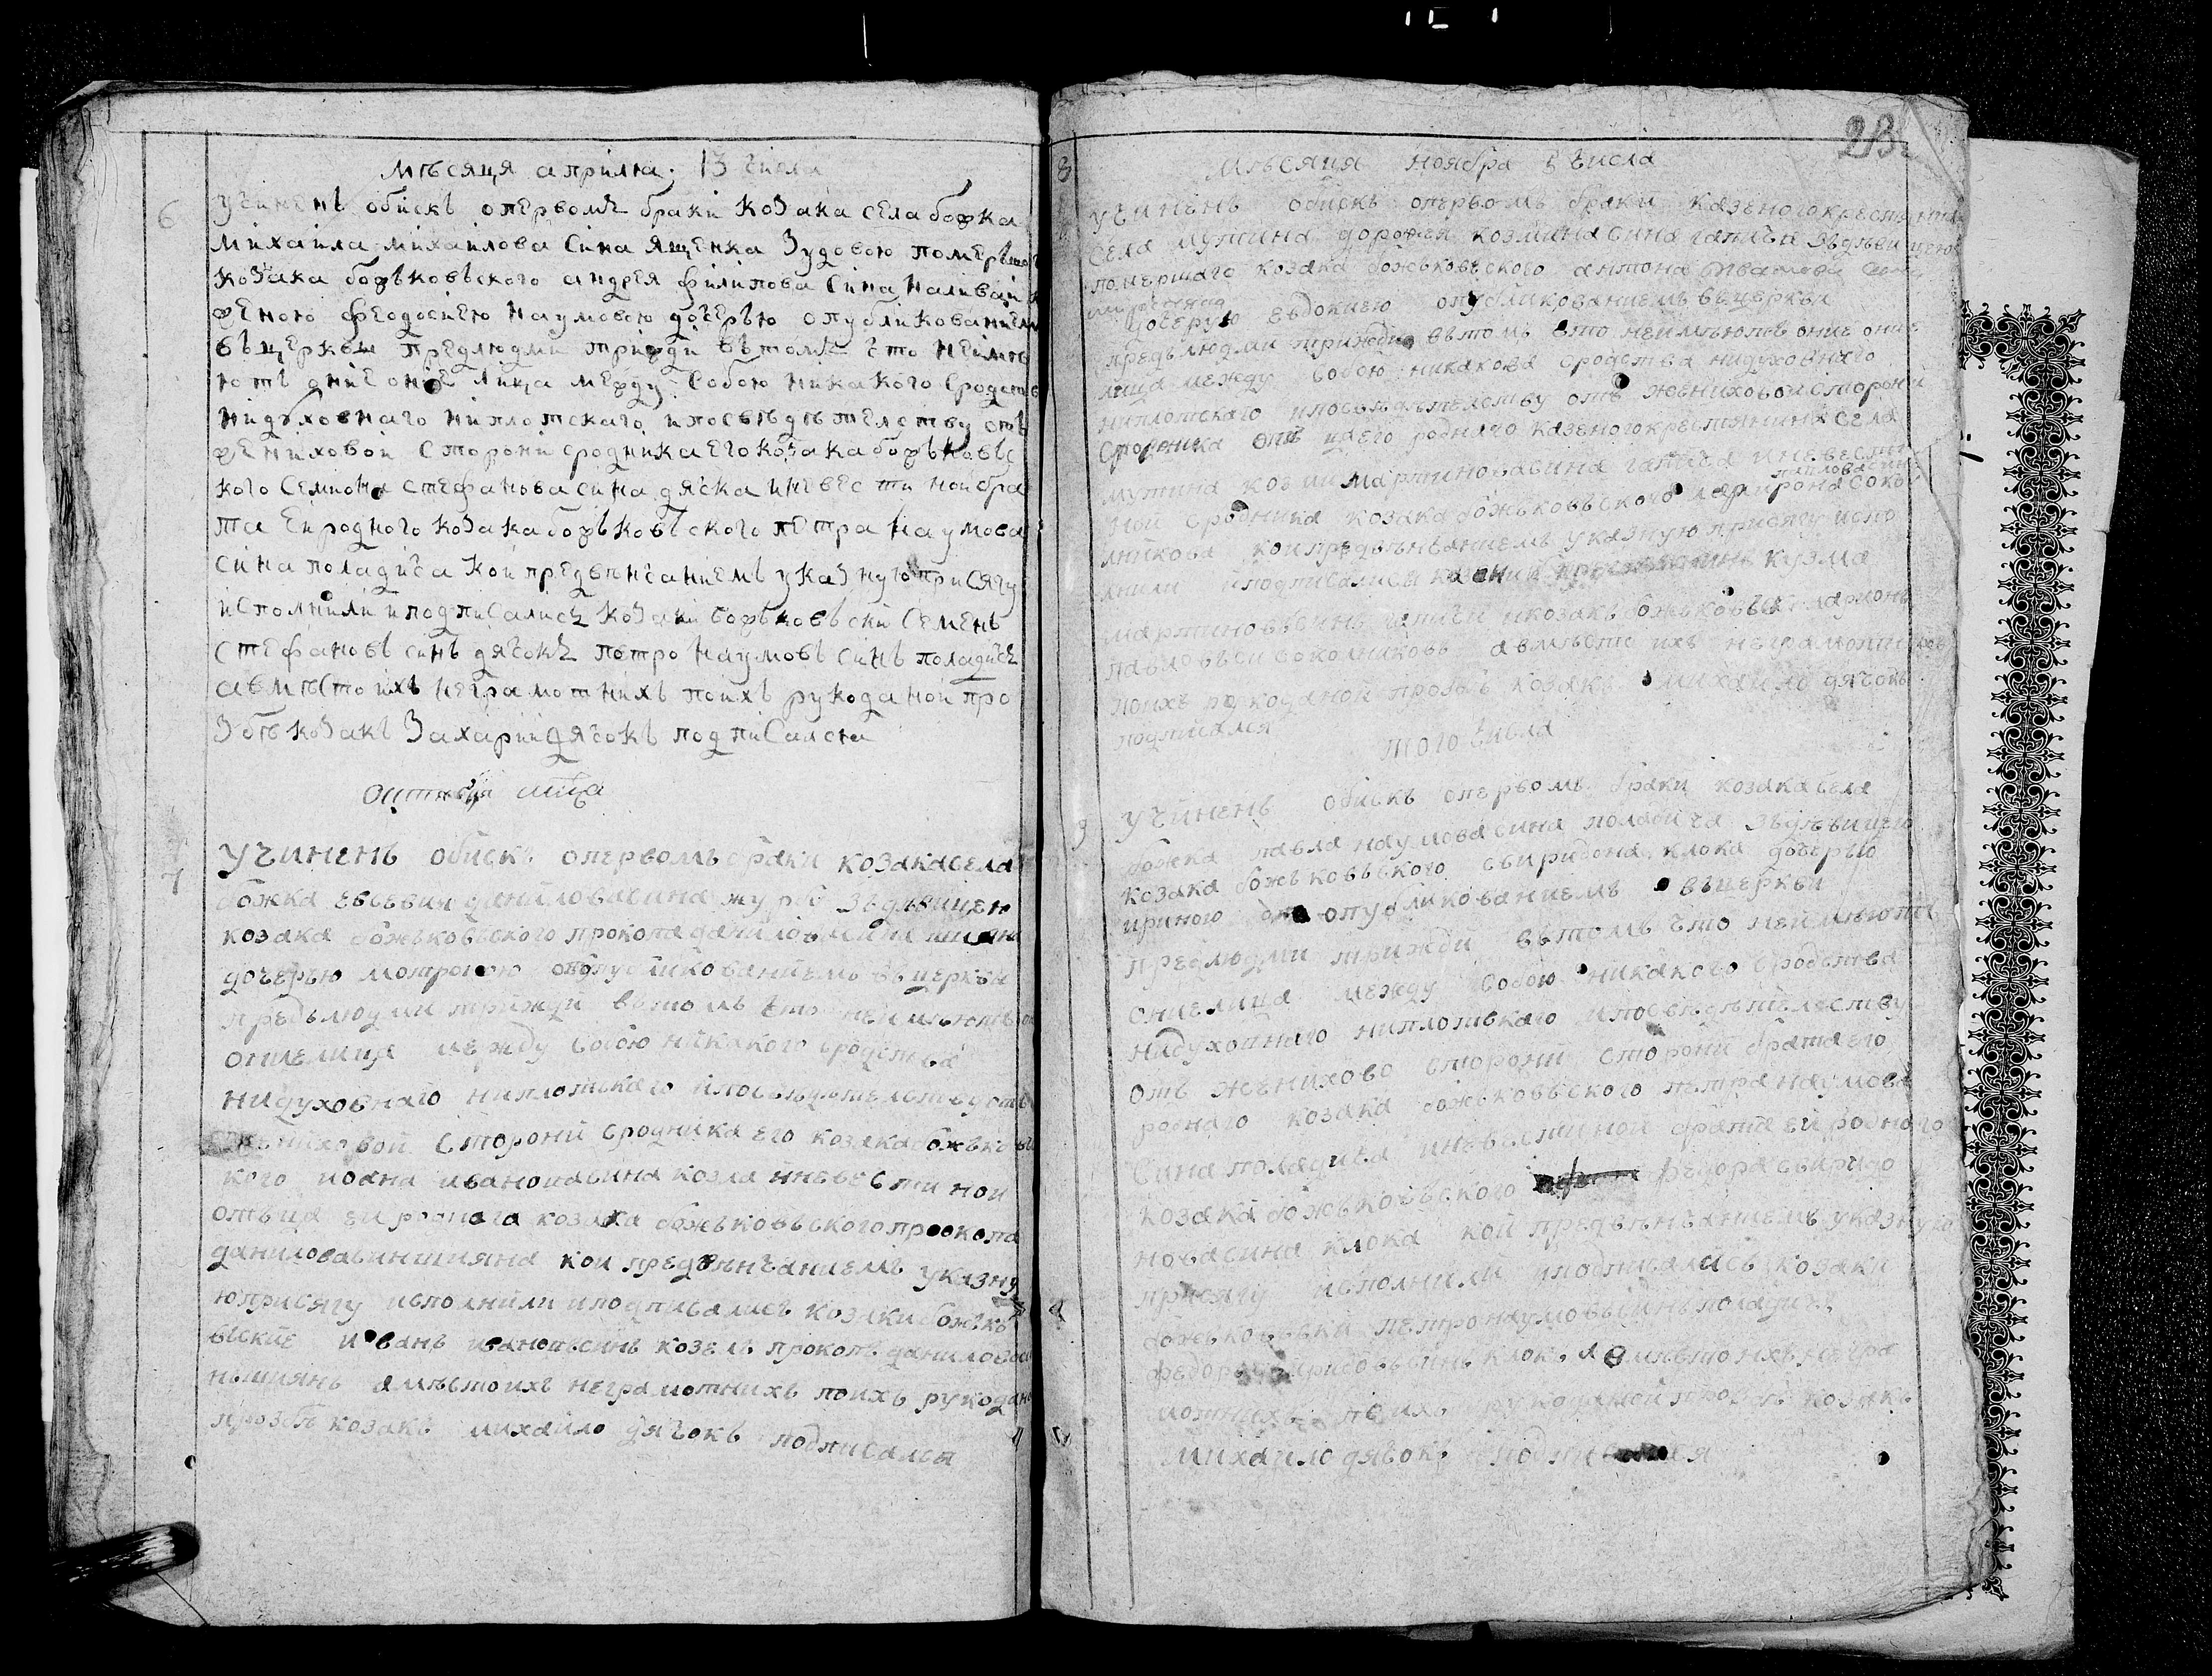 мѣсяця апрѣля 13 числа
6
Учиненъ обискъ опервомъ браки козака села божка
Михаила михаилова сина ященка Зудовою помершого
козака божъковъского андрея филипова сина наливай
женою феодосиею наумовою дочерью опубликованием
въцеркви предлюдми трижди вътомъ что неимѣ
ютъ ониe ониe лица между собою никакого сродств
нидуховнаго ниплотскаго ипосвѣдѣтелству отъ
жениховой сторони сродника его козака божъковъс
кого семиона стефанова сина дячка иневестиной бра
та ей родного козака божъковъского петра наумова
сина поладича кои предвѣнчаниемъ указную присягу
исполнили иподписались козаки божъковъски семенъ
стефановъ синъ дячокъ петро наумовъ синъ поладичъ
авмѣсто ихъ неграмотнихъ поихъ рукоданой про
збѣ козакъ Захарий дячокъ подписался
7
Учиненъ обискъ опервомъ браки козака села
божка евсевия данилова сина Здѣвицею
козака божъковъского прокопа данилова сина шияна
дочерью мотроною опубликованиемъ въцеркви
предълюдми трижди вътомъ что неимѣютъ
ониелица между собою никакого сродства
нидуховнаго ниплотскаго ипосвѣдѣтелству отъ
жениховой сторони сродника его козака божъковъс
кого иоана иванова сина козла иневестиной
отъца ей роднога козака божъковъского прокопа
данилова сина шияна кои предвѣнчаниемъ указну
юприсягу исполнили иподписались козаки божъко
въские иванъ ивановъ синъ козелъ прокопъ данилов си
нъ шиянъ авмѣсто ихъ неграмотнихъ поихъ рукодано
прозбѣ козакъ михайло дячокъ подписался
23
8
Мѣсяця ноября 5 числа
Учиненъ обискъ опервомъ браки казеного крестянина
села мутина дорофея козмина сина гапича Здѣвицею
помершаго козака божъковъского антона иванова сина
дочерую евдокиею опубликованиемъ въцеркви
предълюдми трижди вътомъ что неимѣютъ ониe ониe
лица между собою никакова сродства нидуховнаго
ниплотскаго ипосвѣдѣтелству отъ жениховой сторони
сродника отъцаего роднаго казеного крестянина села
мутина козми мартинова сина гапича иневести
павлова сина
ной сродника козака божъковъского лариона соко
лникова кои предвѣнчаниемъ указную присягу испо
лнили иподписались казений крестянинъ кузма
мартиновъ синъ гапичъ икозакъ божъковъски ларионъ
павловъ си соколниковъ авмѣсто ихъ неграмотнихъ
поихъ рукоданой прозбѣ козакъ михайло дячокъ
подписался
того числа
9
Учиненъ обискъ опервомъ браки козака села
божка павла наумова сина поладича Здѣвицею
козака божъковъского свиридона клока дочерью
ириною опубликованиемъ въцеркви
предлюдми трижди вътомъ что неимѣютъ
ониелица между собою никакого сродства
нидуховнаго ниплотскаго ипосвѣдѣтелству
отъ женихово сторони сторони брата его
роднаго козака божъковъского петра наумова
сина поладича иневестиной брата ей родного
козака божъковъского федора свиридо
нова сина клока кои предвѣнчаниемъ указную
присягу исполнили иподписались козаки
божъковъски петро наумовъ синъ поладичъ
федоръ свиридовъ синъ клокъ авмѣсто ихъ негра
мотнихъ поихъ рукоданой прозбѣ козакъ
михайло дячокъ подписался